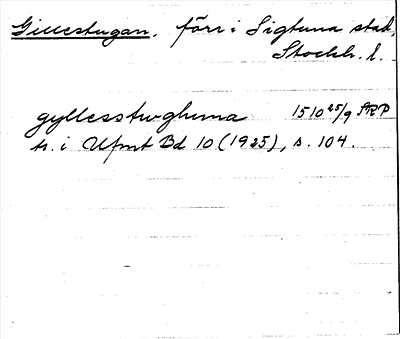 Gillestugan, förr i Sigtuna stad,
Stockh. l.
gyllesstwghuna 1510 25/9 SRP
tr. i Ufmt Bd 10 (1925), s. 104.